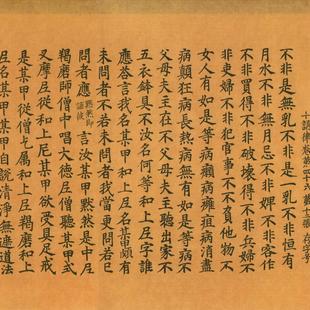 十誦律卷第四十六 第十二張 存字号
不非是無乳不非是一乳不非恒有
月水不非無月忌不非婢不非客作
不非買得不非破壞得不非兵婦不
非吏婦不非犯官事不不負他物不
女人有如是等病癩病癰疽病消盡
病癲狂病長熱病無有如是等病不
父母夫主在不父母夫主聽出家不
五衣鉢具不汝名何等和上尼字誰
應荅言我名某甲和上尼名某甲頗有
未問者不若未問者我當更問若已
問者應言汝某甲默然是中尼
羯磨師僧中唱大德尼僧聽某甲式
叉摩尼從和上尼某甲欲受具足戒
是某甲從僧乞屬和上尼羯磨和上
尼名某甲某甲自說清淨無遮道法